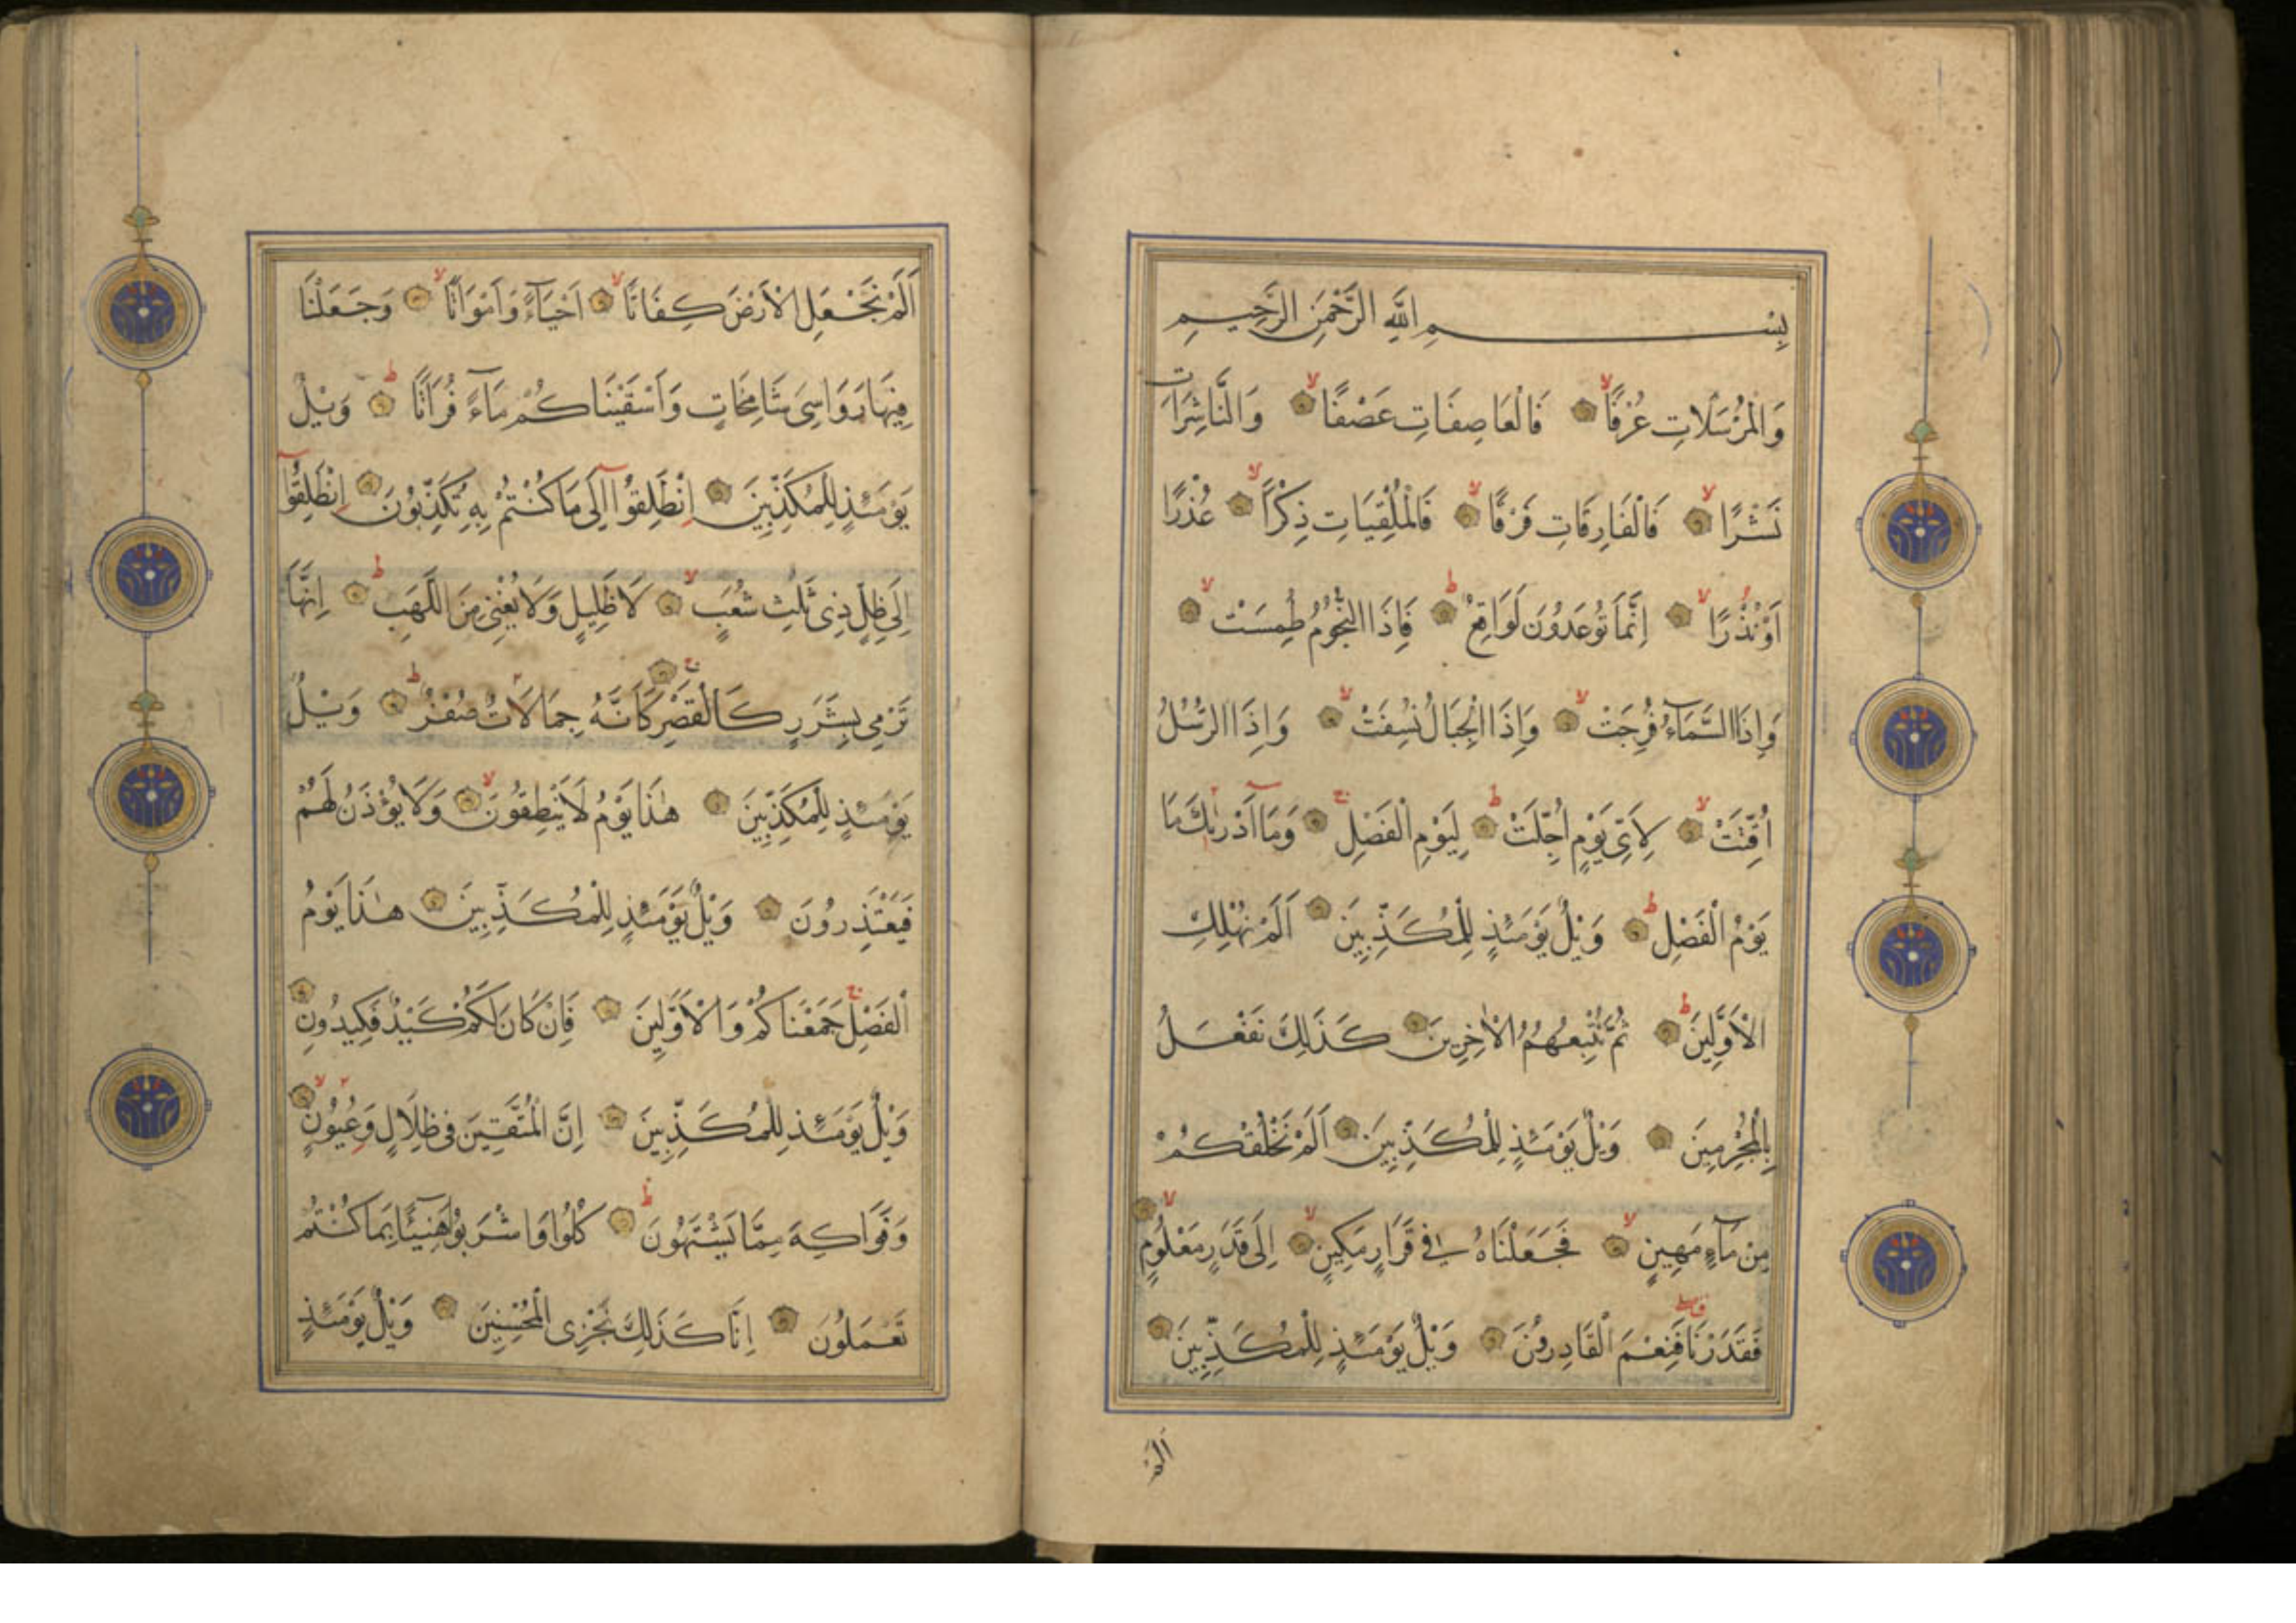 بِسْمِ اللَّهِ الرَّحْمٰنِ الرَّحِيمِ
وَالْمُرْسَلَاتِ عُرْفًا لا فَالْعَاصِفَاتِ عَصْفًا لا وَالنَّاشِرَاتِ
نَشْرًا لا فَالْفَارِقَاتِ فَرْقًا لا فَالْمُلْقِيَاتِ ذِكْرًا لا عُذْرًا
اَوْ نُذْرًا لا اِنَّمَا تُوعَدُونَ لَوَاقِعٌ ط فَاِذَا النُّجُومُ طُمِسَتْ لا
وَاِذَا السَّمَآءُ فُرِجَتْ لا وَاِذَا الْجِبَالُ نُسِفَتْ لا وَاِذَا الرُّسُلُ
اُقِّتَتْ لا لِاَيِّ يَوْمٍ اُجِّلَتْ ط لِيَوْمِ الْفَصْلِ ج وَمَآ اَدْرٰيكَ مَا
يَوْمُ الْفَصْلِ ط وَيْلٌ يَوْمَئِذٍ لِلْمُكَذِّبِينَ اَلَمْ نُهْلِكِ
الْاَوَّلِينَ ط ثُمَّ نُتْبِعُهُمُ الْاٰخِرِينَ كَذَلِكَ نَفْعَلُ
بِالْمُجْرِمِينَ وَيْلٌ يَوْمَئِذٍ لِلْمُكَذِّبِينَ اَلَمْ نَخْلُقْكُمْ
مِنْ مَآءٍ مَهِينٍ لا فَجَعَلْنَاهُ فِي قَرَارٍ مَكِينٍ لا اِلَى قَدَرٍ مَعْلُومٍ لا
فَقَدَرْنَا فَنِعْمَ الْقَادِرُونَ وَيْلٌ يَوْمَئِذٍ لِلْمُكَذِّبِينَ
اَلَمْ
اَلَمْ نَجْعَلِ الْاَرْضَ كِفَاتًا لا اَحْيَآءً وَاَمْوَاتًا لا وَجَعَلْنَا
فِيهَا رَوَاسِيَ شَامِخَاتٍ وَاَسْقَيْنَاكُمْ مَآءً فُرَاتًا ط وَيْلٌ
يَوْمَئِذٍ لِلْمُكَذِّبِينَ اِنْطَلِقُوٓا اِلَى مَا كُنْتُمْ بِهِ تُكَذِّبُونَ اِنْطَلِقُوٓا
اِلَى ظِلٍّ ذِي ثَلٰثِ شُعَبٍ لا لَا ظَلِيلٍ وَلَا يُغْنِي مِنَ اللَّهَبِ ط اِنَّهَا
تَرْمِي بِشَرَرٍ كَالْقَصْرِ ج كَاَنَّهُ جِمَالَاتٌ صُفْرٌ ط وَيْلٌ
يَوْمَئِذٍ لِلْمُكَذِّبِينَ هٰذَا يَوْمُ لَا يَنْطِقُونَ لا وَلَا يُؤْذَنُ لَهُمْ
فَيَعْتَذِرُونَ وَيْلٌ يَوْمَئِذٍ لِلْمُكَذِّبِينَ هٰذَا يَوْمُ
الْفَصْلِ ج جَمَعْنَاكُمْ وَالْاَوَّلِينَ فَاِنْ كَانَ لَكُمْ كَيْدٌ فَكِيدُونِ
وَيْلٌ يَوْمَئِذٍ لِلْمُكَذِّبِينَ اِنَّ الْمُتَّقِينَ فِي ظِلَالٍ وَعُيُونٍ لا
وَفَوَاكِهَ مِمَّا يَشْتَهُونَ ط كُلُوا وَاشْرَبُوا هَنِيئًا بِمَا كُنْتُمْ
تَعْمَلُونَ اِنَّا كَذَلِكَ نَجْزِي الْمُحْسِنِينَ وَيْلٌ يَوْمَئِذٍ